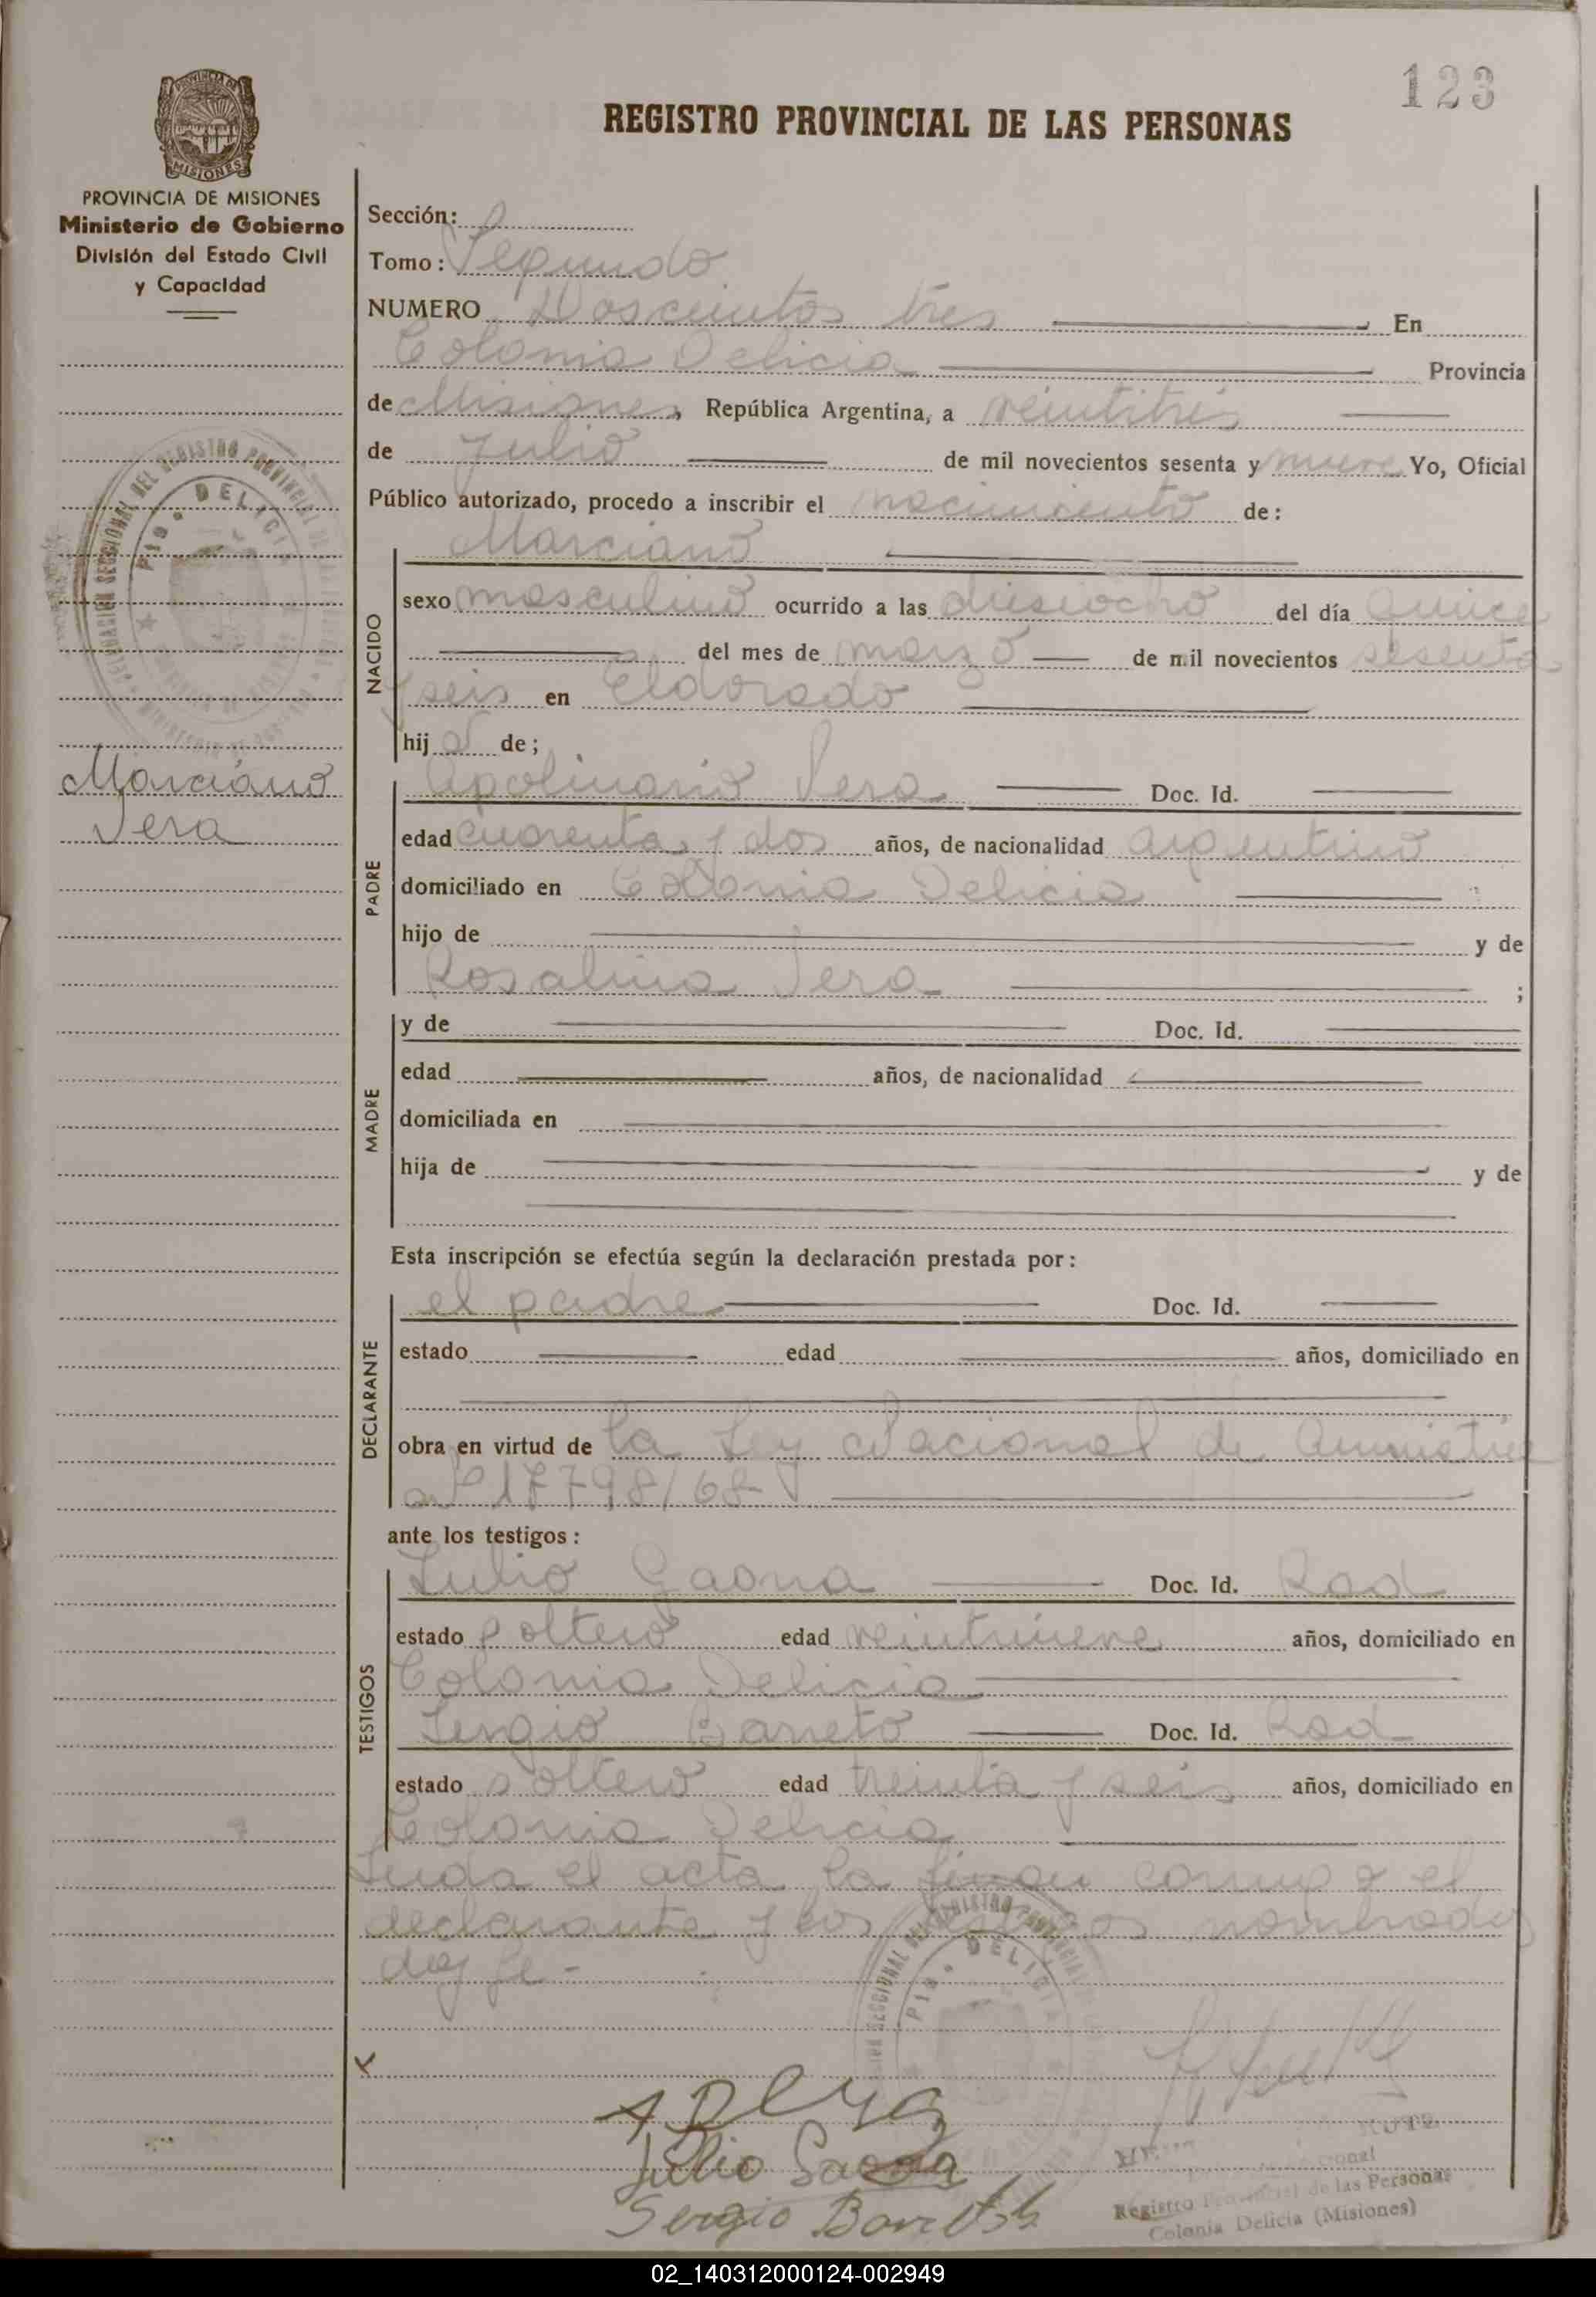 123
REGISTRO PROVINCIAL DE LAS PERSONAS
PROVINCIA DE MISIONES
MISIONES
PROVINCIA DE MISIONES
Ministerio de Gobierno
División del Estado Civil
y Capacidad
Sección:
Tomo: Segundo
NUMERO Doscientos tres En
Colonia Delicia Provincia
de Misiones, República Argentina, a veintitrés
de Julio de mil novecientos sesenta y nueve Yo, Oficial
Público autorizado, procedo a inscribir el nacimiento de:
NACIDO
Marciano
sexo masculino ocurrido a las diesiocho del día quince
del mes de marzo de mil novecientos sesenta
y seis en Eldorado
hijo de;
Marciano
Vera
PADRE
Apolinario Vera Doc. Id.
edad cuarenta y dos años, de nacionalidad argentino
domiciliado en Colonia Delicia
hijo de y de
Rosalina Vera ;
MADRE
y de Doc. Id.
edad años, de nacionalidad
domiciliada en
hija de y de
Esta inscripción se efectúa según la declaración prestada por:
DECLARANTE
el padre Doc. Id.
estado edad años, domiciliado en
obra en virtud de la Ley Nacional de Amnistía
nº 17798/68
ante los testigos:
TESTIGOS
Julio Gaona Doc. Id.
estado soltero edad veintinueve años, domiciliado en
Colonia Delicia
Sergio Barreto Doc. Id.
estado soltero edad treinta y seis años, domiciliado en
Colonia Delicia
Leida el acta la firman conmigo el
declarante y los testigos nombrados
doy fe-
Julio Gaona
Sergio Barreto
Registro Provincial de las Personas
Colonia Delicia (Misiones)
02_140312000124-002949